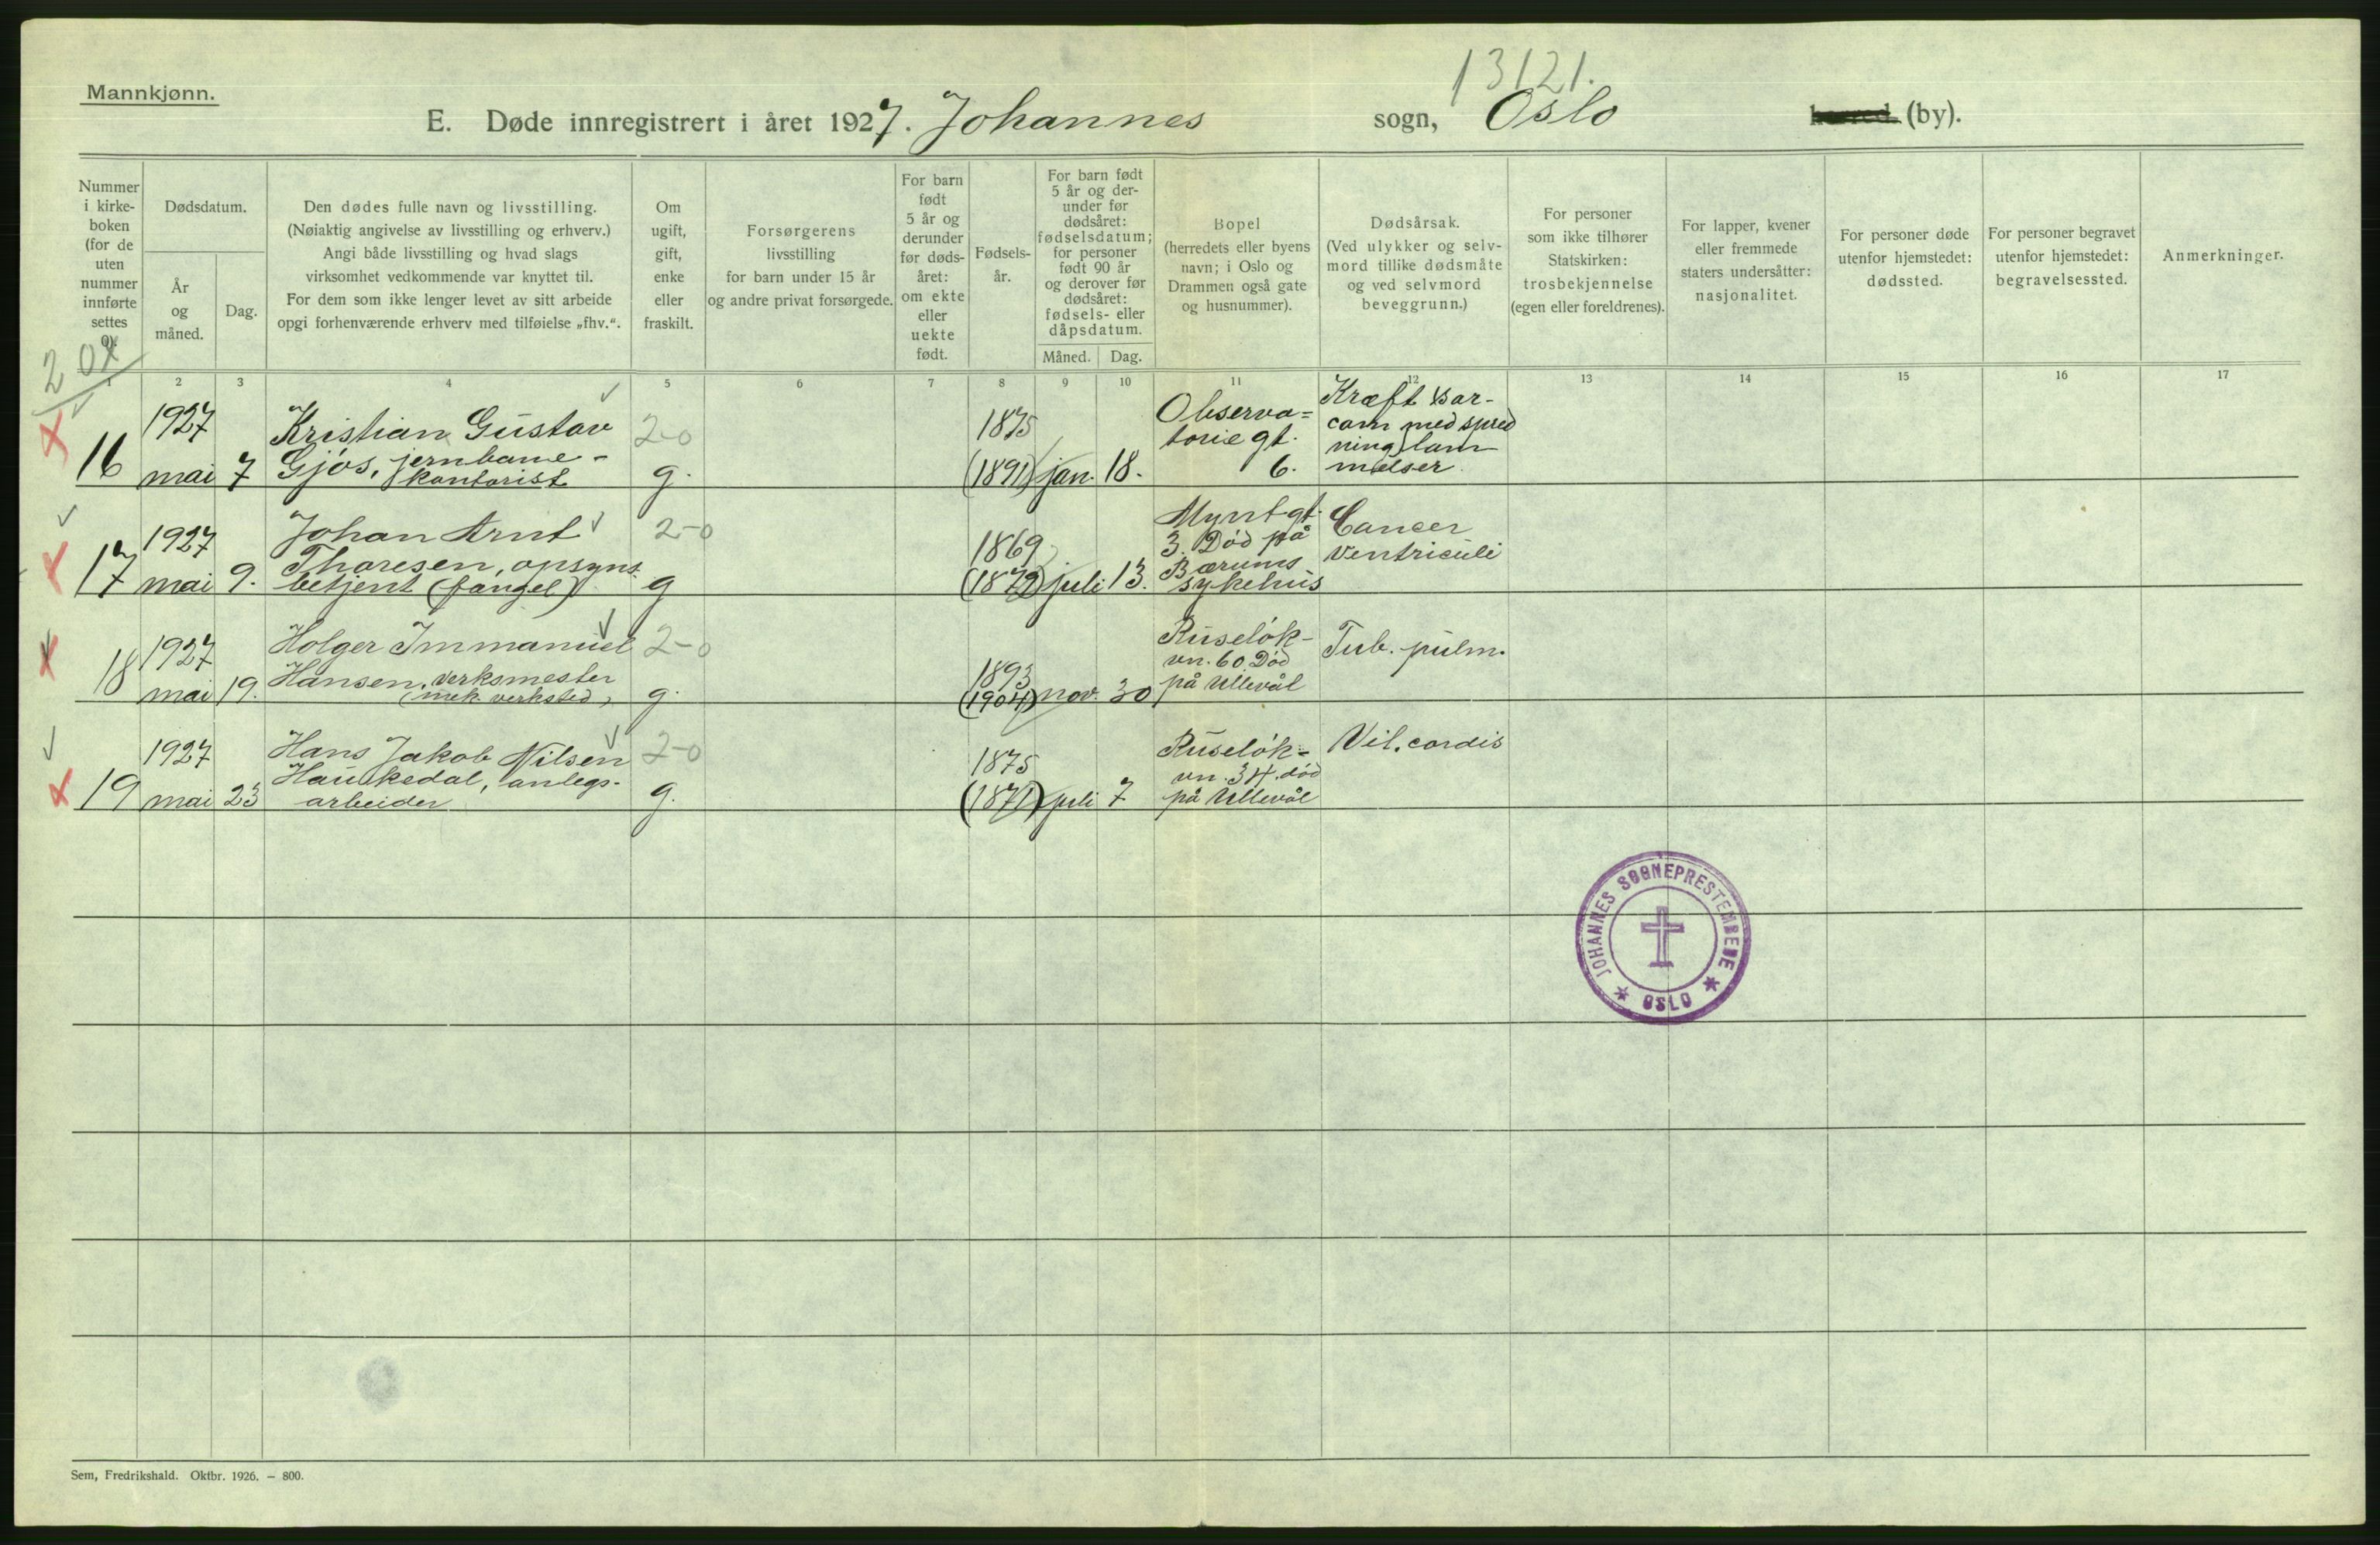 Mannkjønn.
13121.
E. Døde innregistrert i året 1927. Johannes sogn, Oslo herred (by).
Nummer
i kirke-
boken
(for de
uten
nummer
innførte
settes
0).
Dødsdatum.
År
og
måned.
Dag.
Den dødes fulle navn og livsstilling.
(Nøiaktig angivelse av livsstilling og erhverv.)
Angi både livsstilling og hvad slags
virksomhet vedkommende var knyttet til.
For dem som ikke lenger levet av sitt arbeide
opgi forhenværende erhverv med tilføielse „fhv.“.
Om
ugift,
gift,
enke
eller
fraskilt.
Forsørgerens
livsstilling
for barn under 15 år
og andre privat forsørgede.
For barn
født
5 år og
derunder
før døds-
året:
om ekte
eller
uekte
født.
Fødsels-
år.
For barn født
5 år og der-
under før
dødsåret:
fødselsdatum;
for personer
født 90 år
og derover før
dødsåret:
fødsels- eller
dåpsdatum.
Måned. Dag.
Bopel
(herredets eller byens
navn; i Oslo og
Drammen også gate
og husnummer).
Dødsårsak.
(Ved ulykker og selv-
mord tillike dødsmåte
og ved selvmord
beveggrunn.)
For personer
som ikke tilhører
Statskirken:
trosbekjennelse
(egen eller foreldrenes).
For lapper, kvener
eller fremmede
staters undersåtter:
nasjonalitet.
For personer døde
utenfor hjemstedet:
dødssted.
For personer begravet
utenfor hjemstedet:
begravelsessted.
Anmerkninger.
1 2 3 4 5 6 7 8 9 10 11 12 13 14 15 16 17
16
1927
mai 7
Kristian Gustav
Gjøs, jernbane-
kontorist
2-0
g.
1875
(1891) jan. 18.
Observa=
torie gt.
6.
Kræft sar-
com med spred
ning lam
melser.
17
1927
mai 9.
Johan Arnt
Thoresen, opsyns
betjent (fængel)
2-0
g
1869
(1872) juli 13.
Myntgt.
3. Død på
Bærums
sykehus
Cancer
ventriculi
18
1927
mai 19.
Holger Immanuel
Hansen, verksmester
(mek. verksted)
2-0
g.
1893
(1904) nov. 30
Ruseløk-
vn. 60. Død
på Ullevål
Tub. pulm.
19
1927
mai 23
Hans Jakob Nilsen
Haukedal, anlegs-
arbeider
2-0
g.
1875
(1871) juli 7
Ruseløk-
vn. 34. død
på Ullevål
Vit. cordis
JOHANNES SOGNEPRESTEMBEDE
OSLO
Sem, Fredrikshald. Oktbr. 1926. – 800.